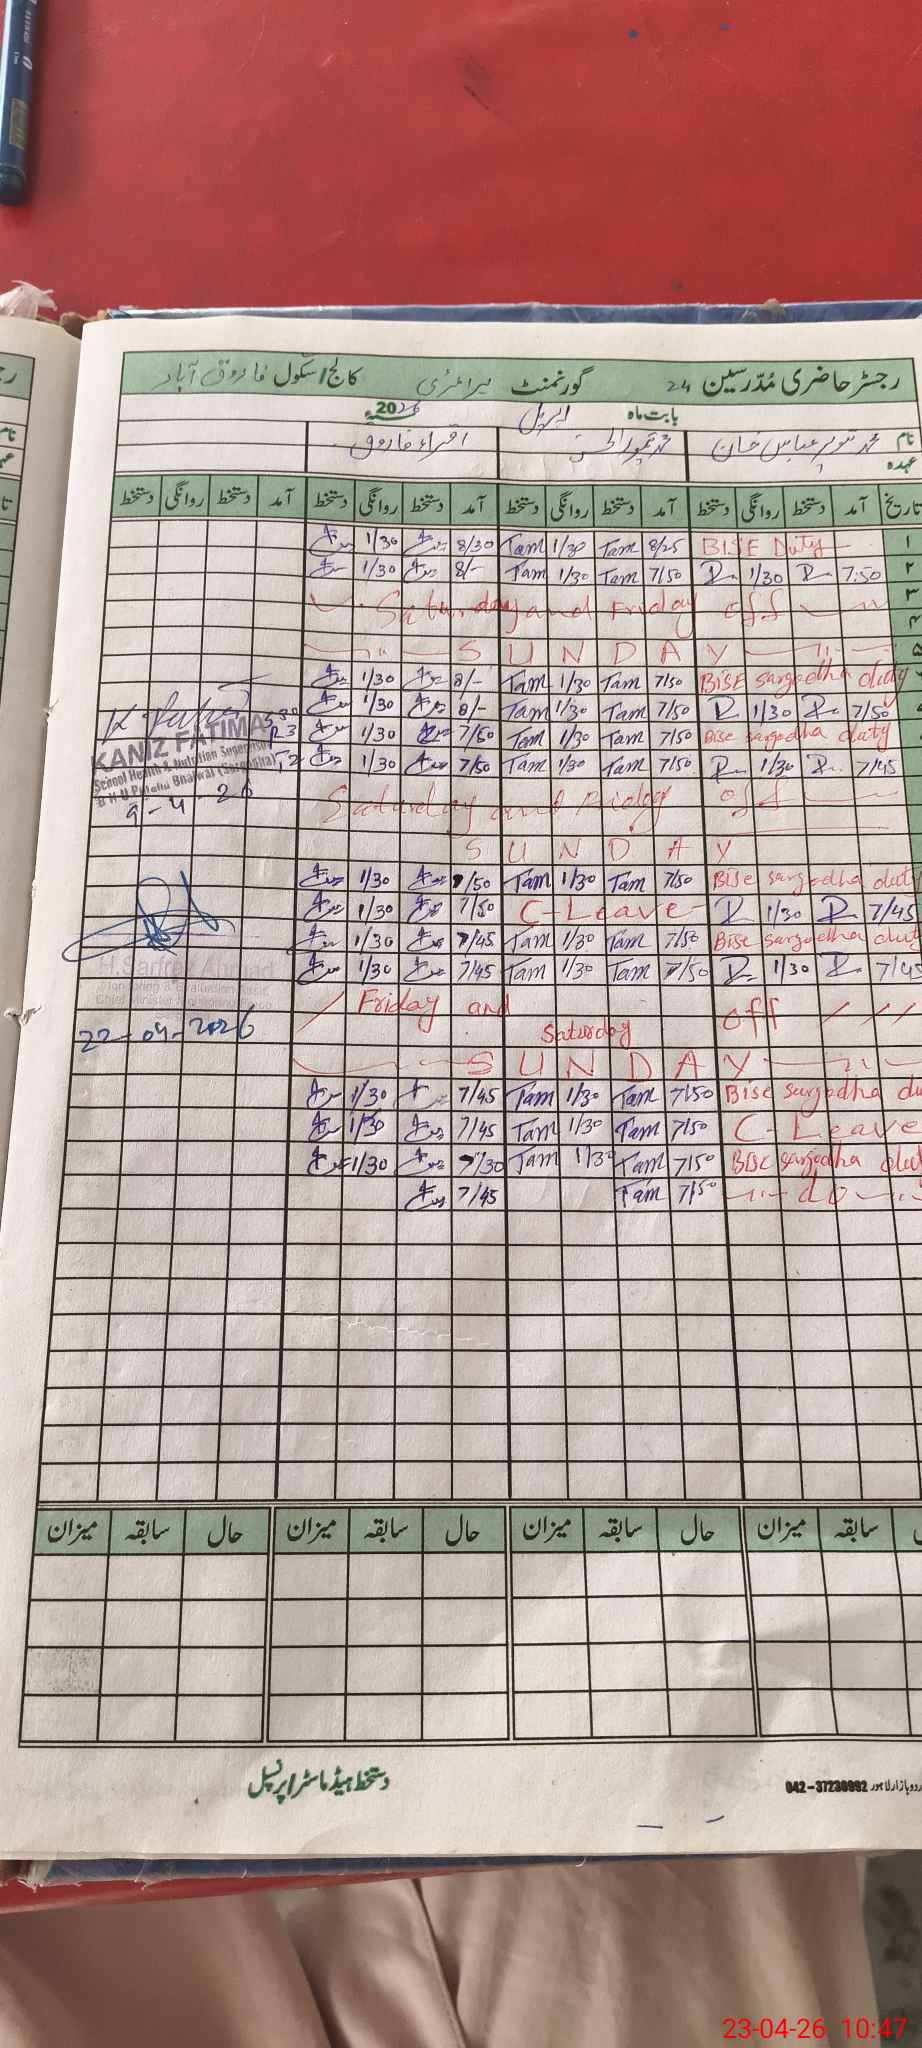 رجسٹر حاضری مُدرسین 24 گورنمنٹ پرائمری کالج/سکول فاروق آباد
بابت ماہ اپریل 2026
نام محمد تنویر عباس خان محمد تیمور الحسن اقراء فاروق
عہدہ
تاریخ آمد دستخط روانگی دستخط آمد دستخط روانگی دستخط آمد دستخط روانگی دستخط آمد دستخط روانگی دستخط
۱ BISE Duty 8/25 Tam 1/30 Tam 8/30 1/30
۲ 7:50 1/30 7/50 Tam 1/30 Tam 8/- 1/30
۳ Saturday and Friday off
۴
۵ SUNDAY
BISE sargodha duty 7/50 Tam 1/30 Tam 8/- 1/30
7/50 1/30 7/50 Tam 1/30 Tam 8/- 1/30
Bise sargodha duty 7/50 Tam 1/30 Tam 7/50 1/30
7/45 1/30 7/50 Tam 1/30 Tam 7/50 1/30
KANIZ FATIMA
School Health & Nutrition Supervisor
B H U Bhalwal (Sargodha)
9-4-26
Saturday and Friday off
SUNDAY
Bise sargodha duty 7/50 Tam 1/30 Tam 7/50 1/30
7/45 1/30 C-Leave 7/50 1/30
Bise sargodha dut 7/50 Tam 1/30 Tam 7/45 1/30
7/45 1/30 7/50 Tam 1/30 Tam 7/45 1/30
H.Sarfraz Ahmad
Chief Minister
22-04-2026
Friday and Saturday off
SUNDAY
Bise sargodha du 7/50 Tam 1/30 Tam 7/45 1/30
C-Leave 7/50 Tam 1/30 Tam 7/45 1/30
BISE sargodha dut 7/50 Tam 1/30 Tam 7/30 1/30
do 7/50 Tam 7/45
سابقہ میزان حال سابقہ میزان حال سابقہ میزان حال سابقہ میزان
دستخط ہیڈ ماسٹر/پرنسپل
اردو بازار لاہور 042-37230992
23-04-26 10:47